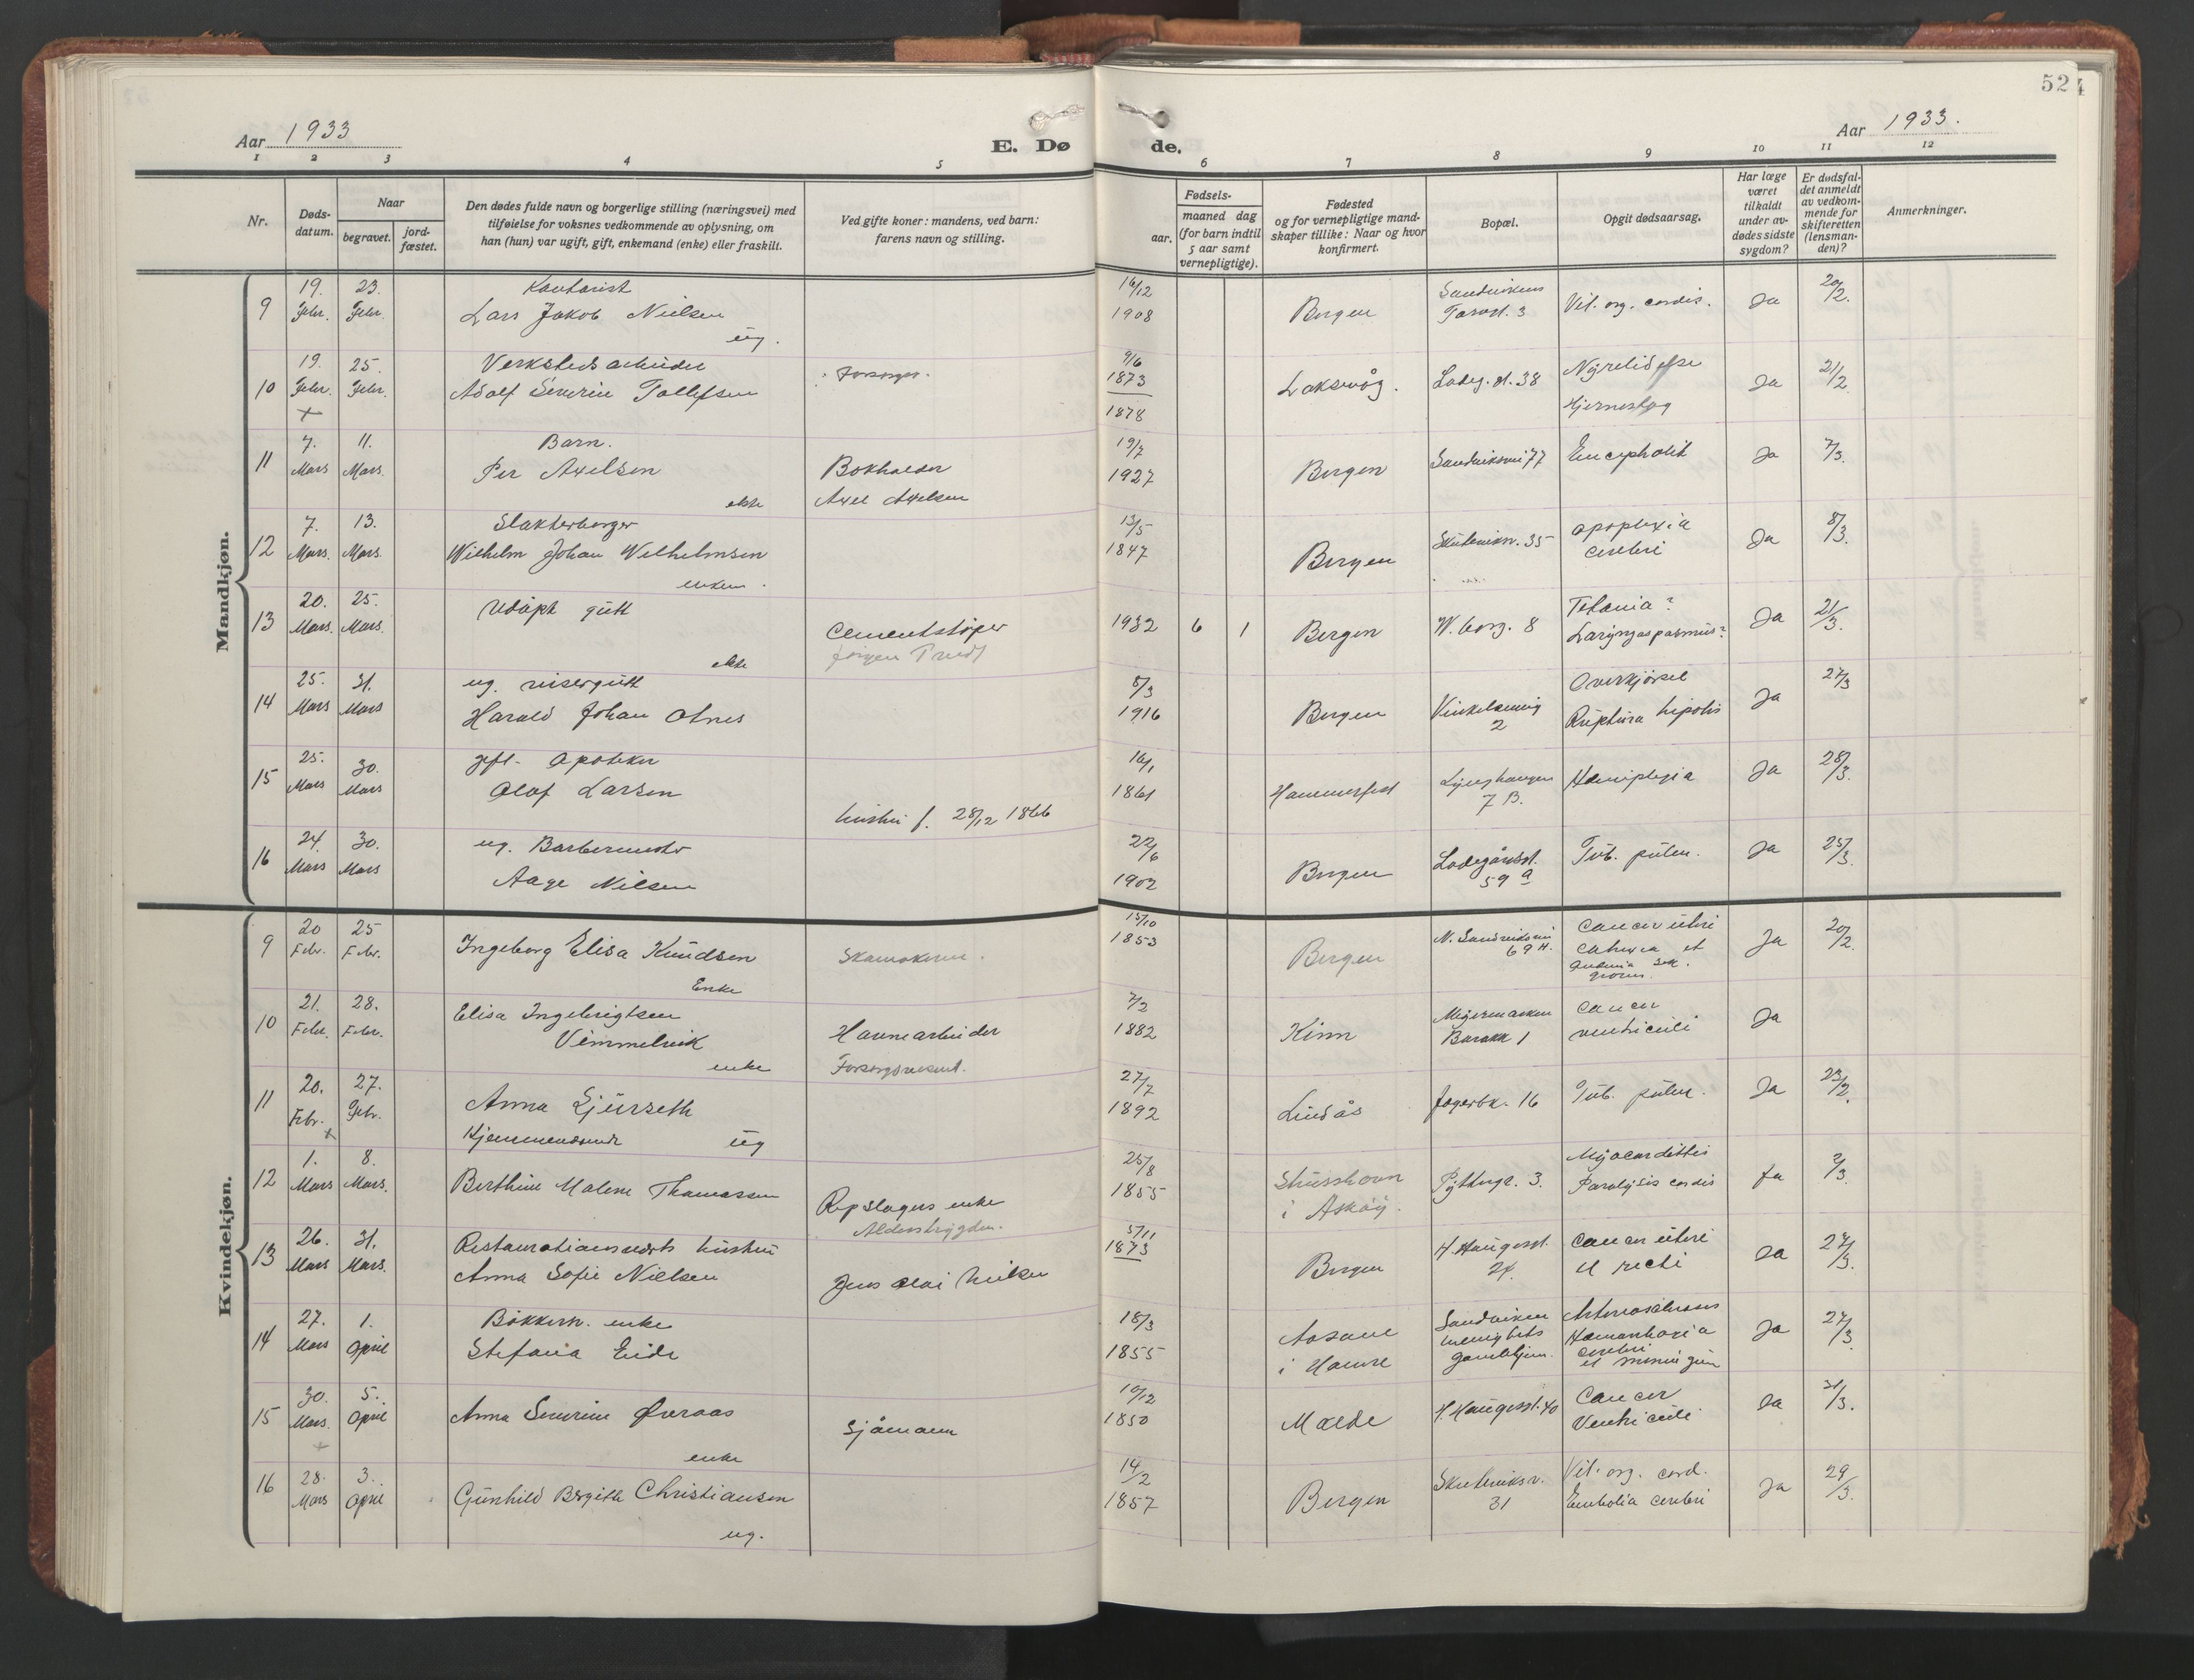 52
Aar 1933
E. Dø
de.
Aar 1933.
1 2 3 4 5 6 7 8 9 10 11 12
Nr.
Døds-
datum.
Naar
begravet.
jord-
fæstet.
Den dødes fulde navn og borgerlige stilling (næringsvei) med
tilføielse for voksnes vedkommende av oplysning, om
han (hun) var ugift, gift, enkemand (enke) eller fraskilt.
Ved gifte koner: mandens, ved barn:
farens navn og stilling.
Fødsels-
aar.
maaned dag
(for barn indtil
5 aar samt
vernepligtige).
Fødested
og for vernepligtige mand-
skaper tillike: Naar og hvor
konfirmert.
Bopæl.
Opgit dødsaarsag.
Har læge
været
tilkaldt
under av-
dødes sidste
sygdom?
Er dødsfal-
det anmeldt
av vedkom-
mende for
skifteretten
(lensman-
den)?
Anmerkninger.
Mandkjøn.
9 19. Febr. 23. Febr.
Kontorist
Lars Jakob Nielsen
ug.
16/12 1908
Bergen
Sandvikens
Vit. org. cordis.
Ja 20/2.
10 19. Febr. + 25. Febr.
Verkstedsarbeider
Adolf Severin Tollefsen
Forsorger.
9/6 1873
1878
Laksevåg.
Ladeg. st. 38
Nyrelidelse
Ja 21/2
11 7. Mars 11. Mars.
Barn.
Per Axelsen
ekte
Bokholder
Axel Axelsen
19/7 1927
Bergen
Sandviksvei 77
Encephalit
Ja 7/3.
12 7. Mars. 13. Mars.
Slakterborger
Wilhelm Johan Wilhelmsen
enkem.
13/5 1847
Bergen
Skuteviksv. 35
apoplexia
cerebri
Ja 8/3.
13 20. Mars. 25. Mars.
Udøpt gutt
ekte
Cementstøper
Jørgen
1932 6 1
Bergen
W. borg. 8
Tetania?
Laryngospasmus?
Ja 21/3.
14 25. Mars 31. Mars
ug. visergutt
Harald Johan Otnes
8/3 1916
Bergen
Vinkelsmug
2
Overkjørsel
Ruptura hepatis
Ja 27/3
15 25. Mars 30. Mars
gift. Apoteker
Olaf Larsen
hustru f. 28/12 1866
16/1 1861
Hammerfest
Lynghaugen
7 B.
Hemiplegia
Ja 28/3.
16 24. Mars 30. Mars
ug. Barbermester
Aage Nilsen
22/6 1902
Bergen
Ladegårdsst.
59 a
Tub. pulm.
Ja 25/3.
Kvindekjøn.
9 20 Febr. 25 Febr.
Ingeborg Elisa Knudsen
Enke
Skomakerm.
15/10 1853
Bergen
N. Sandviksvei
69 H.
Cancer uteri
et
sek.
Ja 20/2.
10 21. Febr. 28. Febr.
Elisa Ingebrigtsen
Vemmelvik
enke
Havnearbeider
Forsorgsvesent.
7/2 1882
Kinn
Meyermarken
Barakk 1
Cancer
ventriculi
Ja
11 20. Febr. + 27. Febr.
Anna Gjurseth
ug
27/7 1892
Lindås
Jægerbk. 16
Tub. pulm.
Ja 23/2.
12 1. Mars 8. Mars.
Berthine Malene Thomassen
Repslagers enke
Alderstrygden.
25/8 1855
i Askøy.
Pyttergr. 3.
Myocardittis
Paralysis cordis
Ja 2/3.
13 26. Mars 31. Mars.
Restaurationsverts hustru
Anna Sofie Nielsen
Jens Olai Nielsen
5/11 1873
Bergen
H. Haugesst.
24.
Cancer uteri
et recti
Ja 27/3.
14 27. Mars 1. April
Bøkkerm. enke
Stefania Eide
18/3 1855
Aasane
i Hamre
Sandviken
menighets
gamlehjem.
Arteriosclerosis
cerebri
et
Ja 27/3
15 30. Mars. + 5. April
Anna Severine Øvraas
enke
Sjømann
10/12 1850
Molde
H. Haugesst. 40
Cancer
Ventriculi
Ja 31/3.
16 28. Mars 3. April
Gunhild Birgithe Christiansen
ug.
14/2 1857
Bergen
Skuteviksv.
31
Vit. org. cord.
Embolia cerebri
Ja 29/3.